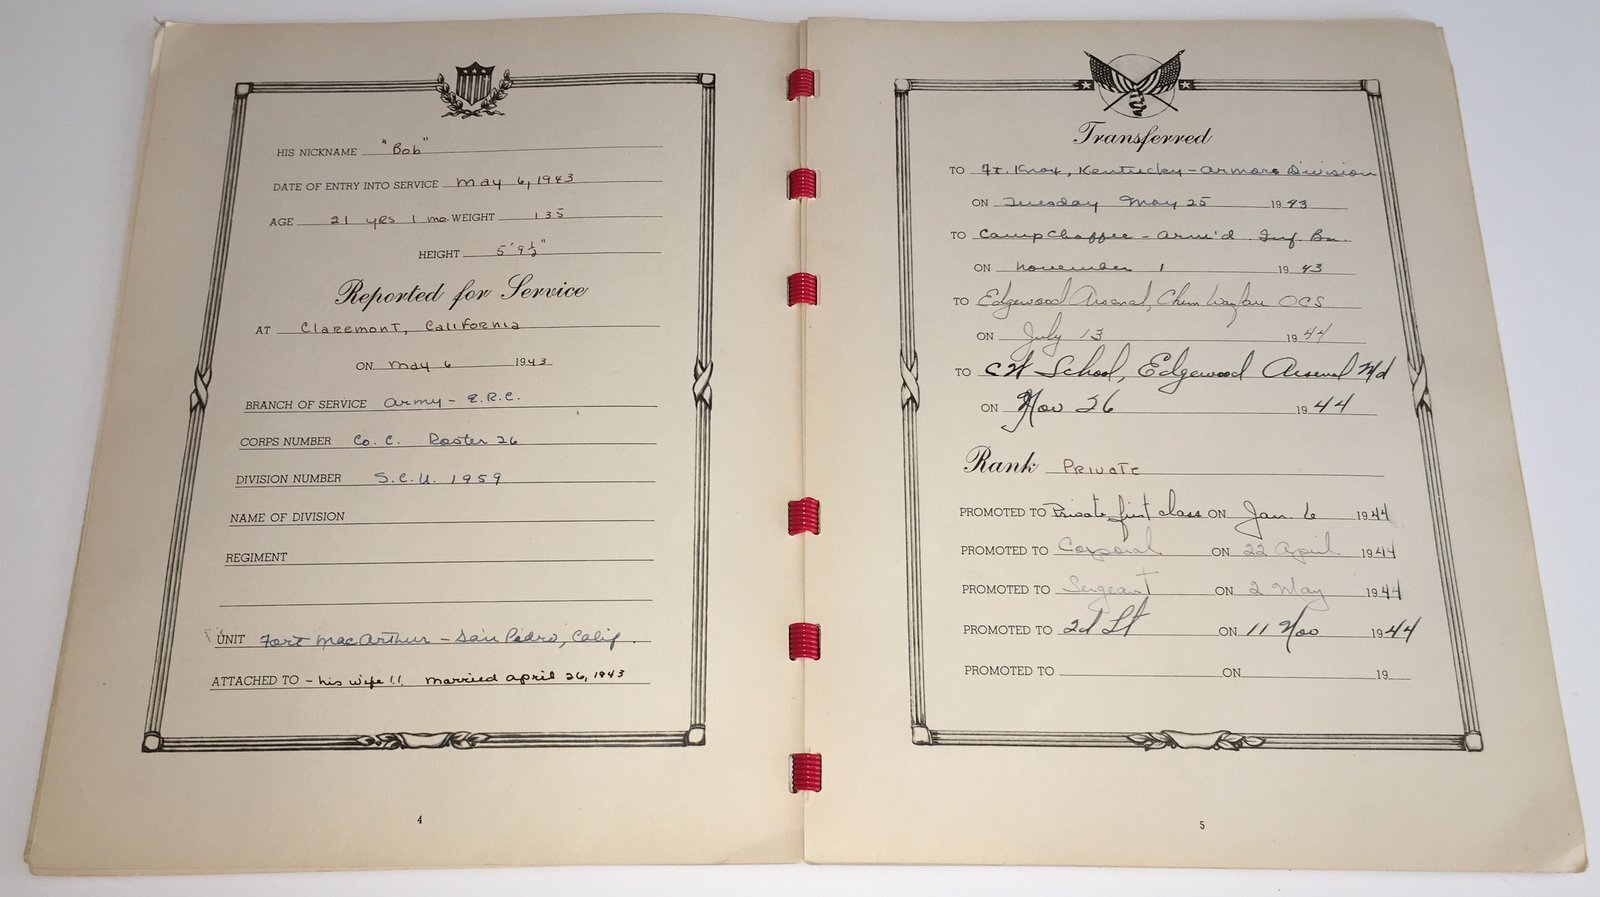 HIS NICKNAME "Bob"
DATE OF ENTRY INTO SERVICE May 6, 1943
AGE 21 yrs 1 mo. WEIGHT 135
HEIGHT 5' 9½"
Reported for Service
AT Claremont, California
ON May 6 1943
BRANCH OF SERVICE Army - E.R.C.
CORPS NUMBER Co. C. Roster 26
DIVISION NUMBER S.C.U. 1959
NAME OF DIVISION
REGIMENT
UNIT Fort MacArthur - San Pedro, Calif.
ATTACHED TO - his wife !! Married April 26, 1943
4
Transferred
TO Ft. Knox, Kentucky - Armored Division
ON Tuesday May 25 1943
TO Camp Chaffee - Arm'd. Inf. Bn.
ON November 1 1943
TO Edgewood Arsenal, Chem Warfare OCS
ON July 13 1944
TO CW School, Edgewood Arsenal Md
ON Nov 26 1944
Rank Private
PROMOTED TO Private first class ON Jan. 6 1944
PROMOTED TO Corporal ON 22 April 1944
PROMOTED TO Sergeant ON 2 May 1944
PROMOTED TO 2d Lt ON 11 Nov 1944
PROMOTED TO ON 19
5